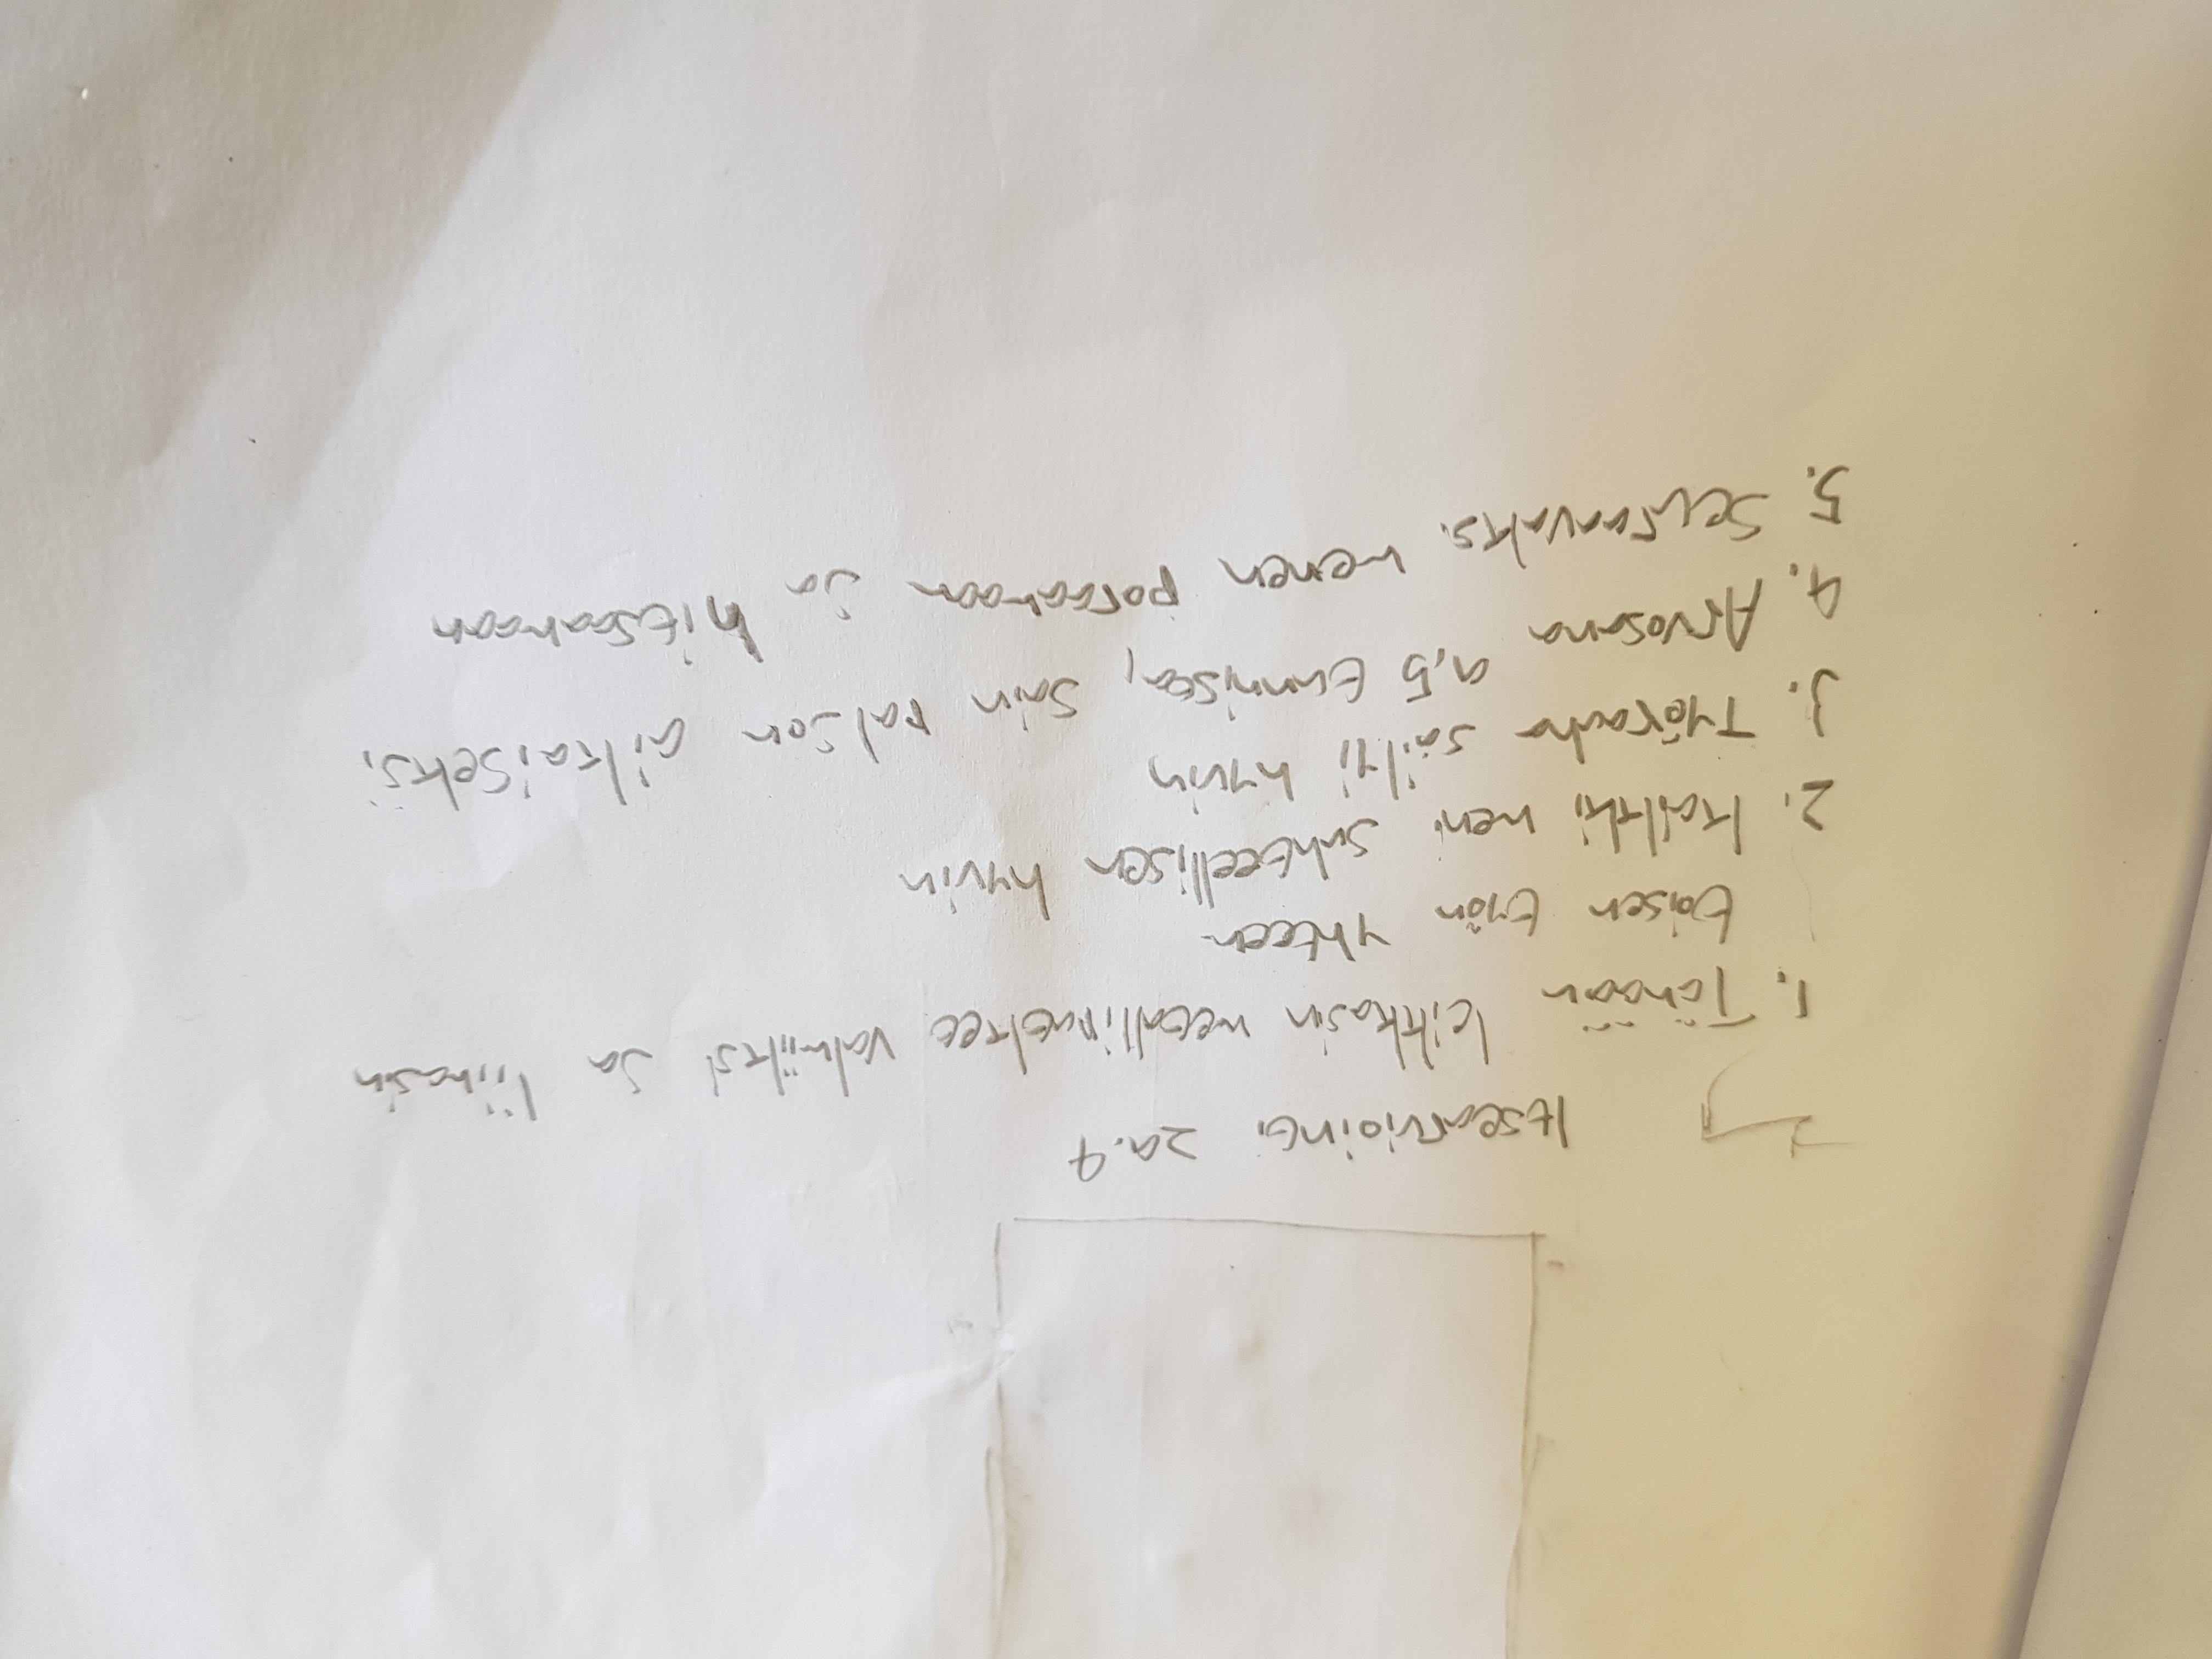 Itsearviointi 29.4
1. Tänään leikkasin metallipaletee valmiiksi ja liimasin
toisen työn yhteen
2. Kaikki meni suhteellisen hyvin
3. Työrauha säilyi hyvin
4. Arvosana 9,5 tunnista, sain paljon aikaiseksi.
5. Seuraavaks menen poraamaan ja hitsaamaan